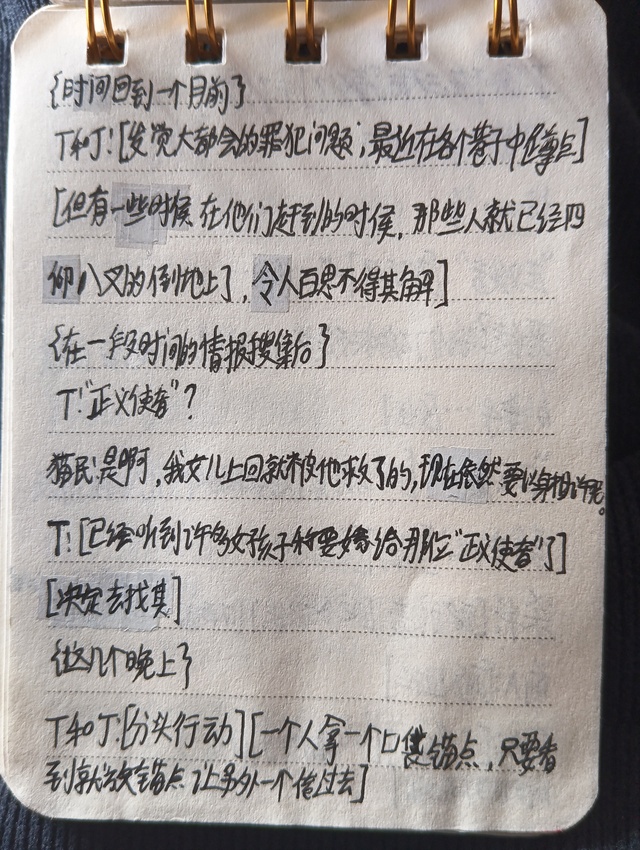 {时间回到一个月前}
T和J:[发觉大都会的罪犯问题,最近在各个巷子中蹲点]
[但有一些时候在他们赶到的时候,那些人就已经四
仰八叉的倒地上],令人百思不得其解]
{在一段时间的情报搜集后}
T:"正义使者"?
猫民:是啊,我女儿上回就被他救了的,现在依然要以身相许呢。
T:[已经听到许多女孩子称要嫁给那位"正义使者"了]
[决定去找其]
{这几个晚上}
T和J:[分头行动][一个人拿一个口袋锚点,只要看
到就放锚点让另外一个传过去]